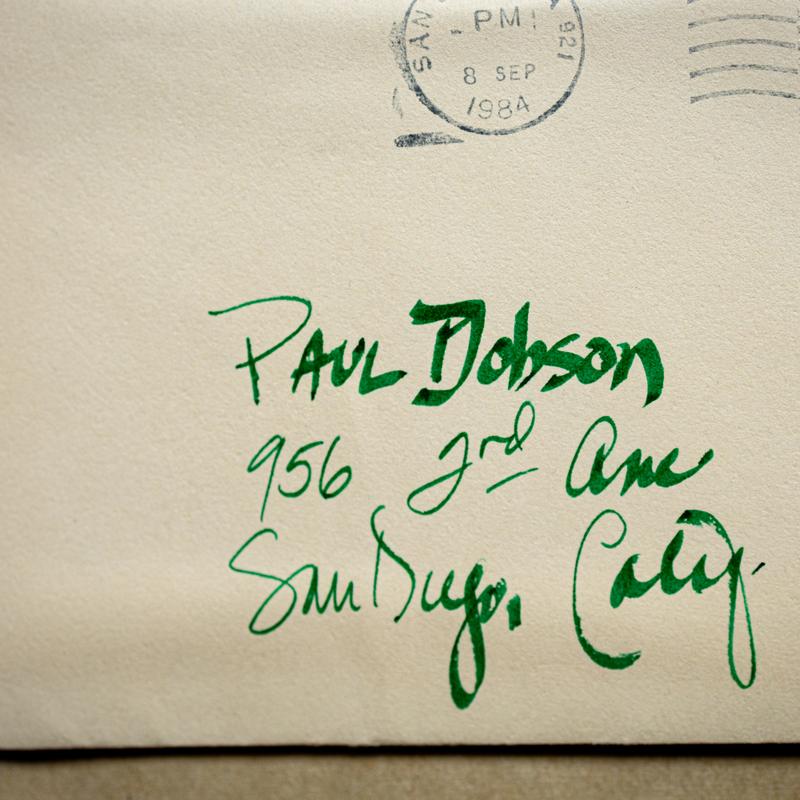 SAN
PM
921
8 SEP
1984
PAUL Dobson
956 3rd Ave
San Diego, Calif.